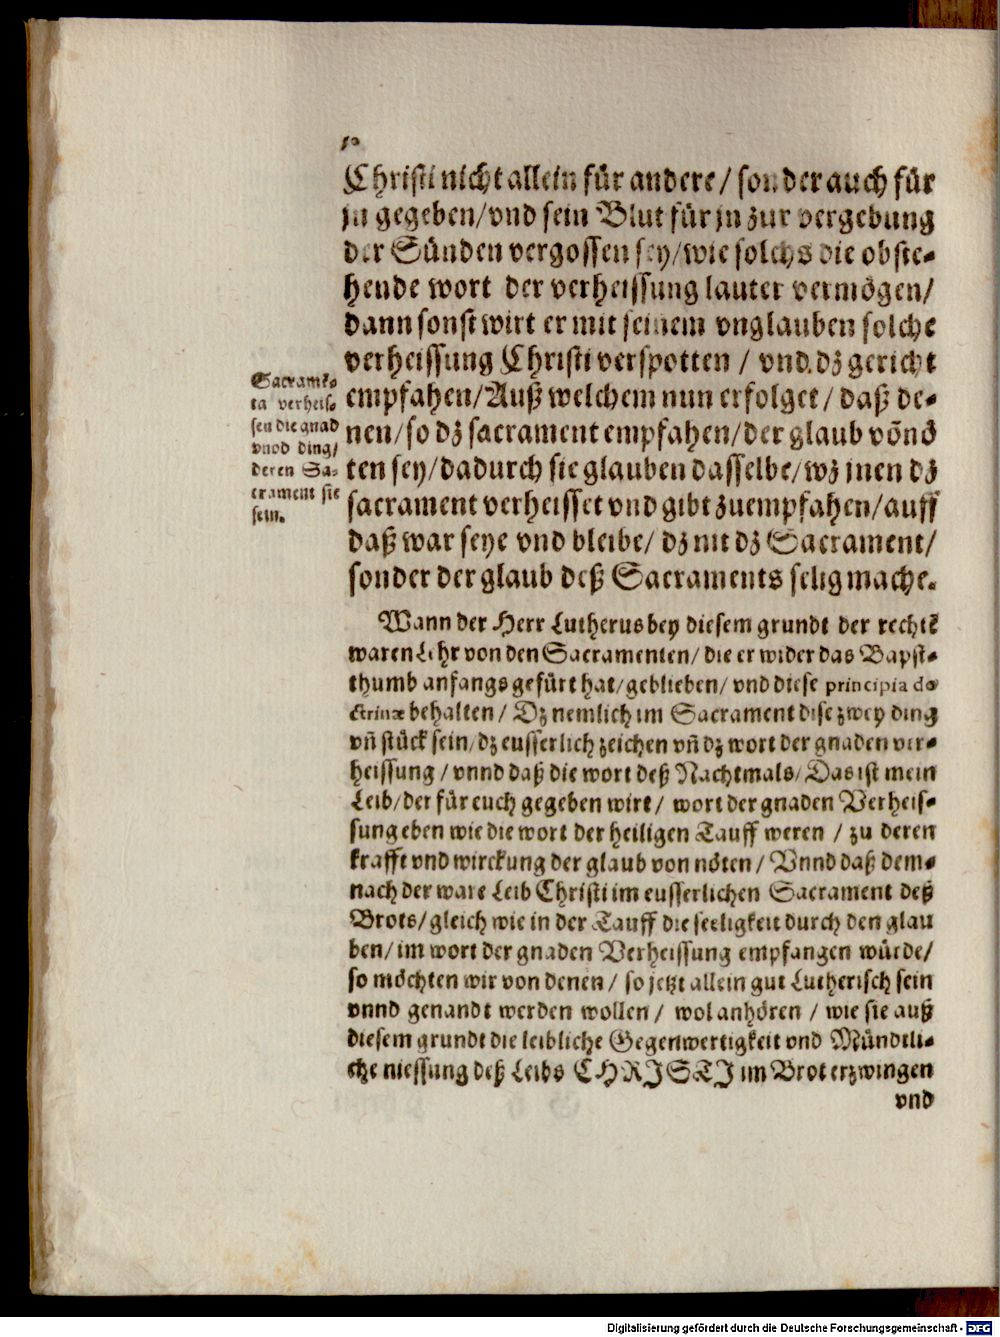 Christi nicht allein für andere / sonder auch für
jn gegeben/vnd sein Blut für jn zur vergebung
der Sünden vergossen sey/wie solchs die obste-
hende wort der verheissung lauter vermögen/
dann sonst wirt er mit seinem vnglauben solche
verheissung Christi verspotten / vnd dz gericht
empfahen/Auß welchem nun erfolget / daß de-
nen/so dz sacrament empfahen/der glaub võnö
ten sey/dadurch sie glauben dasselbe/wz jnen dz
sacrament verheisset vnd gibt zuempfahen/auff
daß war seye vnd bleibe/ dz nit dz Sacrament/
sonder der glaub deß Sacraments selig mache.
Sacramē-
ta verheis-
sen die gnad
vnnd ding/
deren Sa-
crament sie
sein.
Wann der Herr Lutherus bey diesem grundt der rechtē
waren Lehr von den Sacramenten/ die er wider das Bapst-
thumb anfangs gefürt hat/geblieben/ vnd diese principia do
ctrinæ behalten / Dz nemlich im Sacrament dise zwey ding
vñ stück sein/dz eusserlich zeichen vñ dz wort der gnaden ver-
heissung / vnnd daß die wort deß Nachtmals/Das ist mein
Leib/der für euch gegeben wirt/ wort der gnaden Verheis-
sung eben wie die wort der heiligen Tauff weren / zu deren
krafft vnd wirckung der glaub von nöten / Vnnd daß dem-
nach der ware Leib Christi im eusserlichen Sacrament deß
Brots/gleich wie in der Tauff die seeligkeit durch den glau
ben/im wort der gnaden Verheissung empfangen würde/
so möchten wir von denen / so jetzt allein gut Lutherisch sein
vnnd genandt werden wollen / wol anhören / wie sie auß
diesem grundt die leibliche Gegenwertigkeit vnd Mündtli-
che niessung deß Leibs CHRISTI im Brot erzwingen
vnd
Digitalisierung gefördert durch die Deutsche Forschungsgemeinschaft - DFG